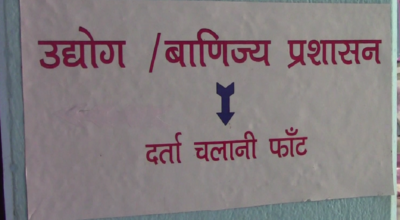 उद्योग /बाणिज्य प्रशासन
दर्ता चलानी फाँट